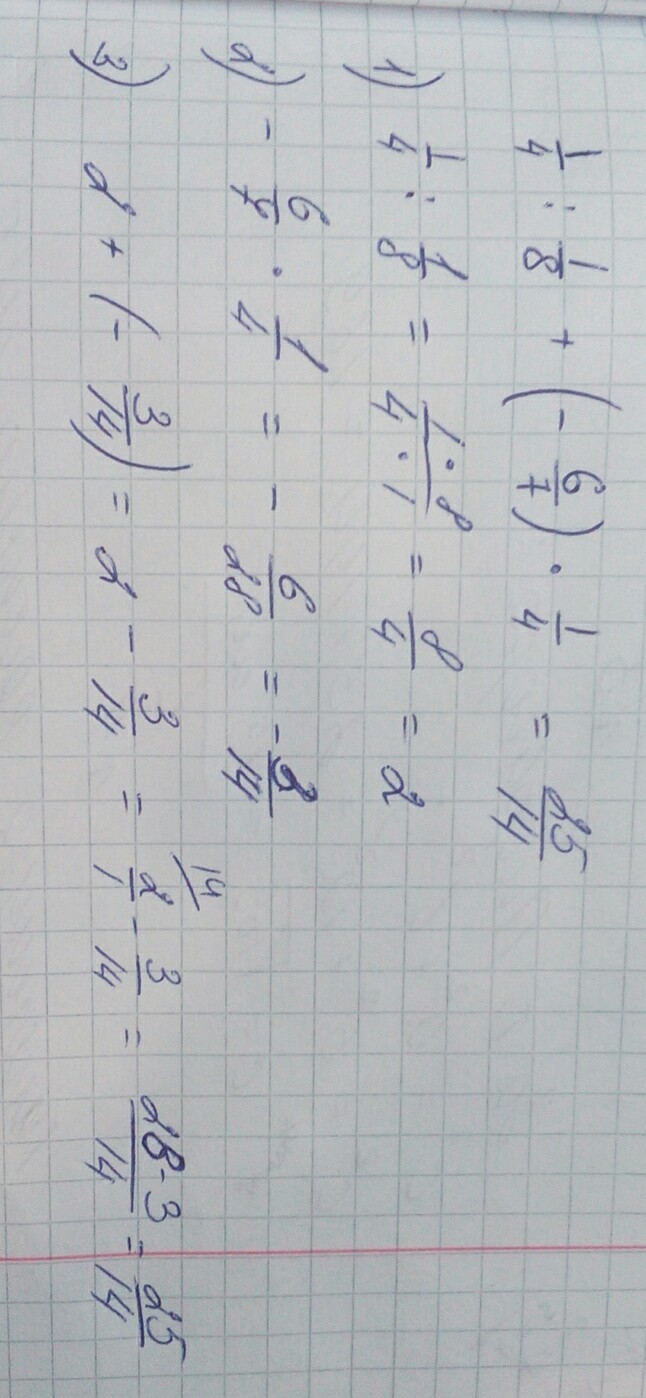 1/4 : 1/8 + (- 6/7) · 1/4 = 25/14
1) 1/4 : 1/8 = 1·8/4·1 = 8/4 = 2
2) - 6/7 · 1/4 = - 6/28 = - 3/14
3) 2 + (- 3/14) = 2 - 3/14 = 2/1 (14 - 3/14 = 28-3/14 = 25/14